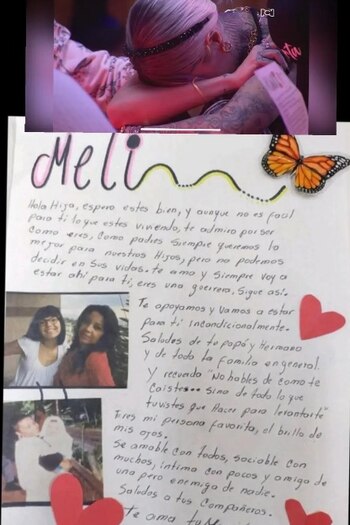 Meli
Hola Hija, espero estes bien, y aunque no es facil
para ti lo que estes viviendo, te admiro por ser
como eres, como padres siempre queremos lo
mejor para nuestros Hijos, pero no podemos
decidir en sus vidas. te amo y siempre voy a
estar ahi para ti, eres una guerrera, sigue asi.
Te apoyamos y vamos a estar
para ti incondicionalmente.
Saludos de tu papá y Hermano
y de toda la familia en general.
Y recuerda "No hables de como te
caiste... sino de todo lo que
tuvistes que Hacer para levantarte"
Eres mi persona favorita, el brillo de
mis ojos.
Se amable con Todos, sociable con
muchos, íntima con pocos y amiga de
una pero enemiga de nadie.
Saludos a tus Compañeros.
Te ama tu